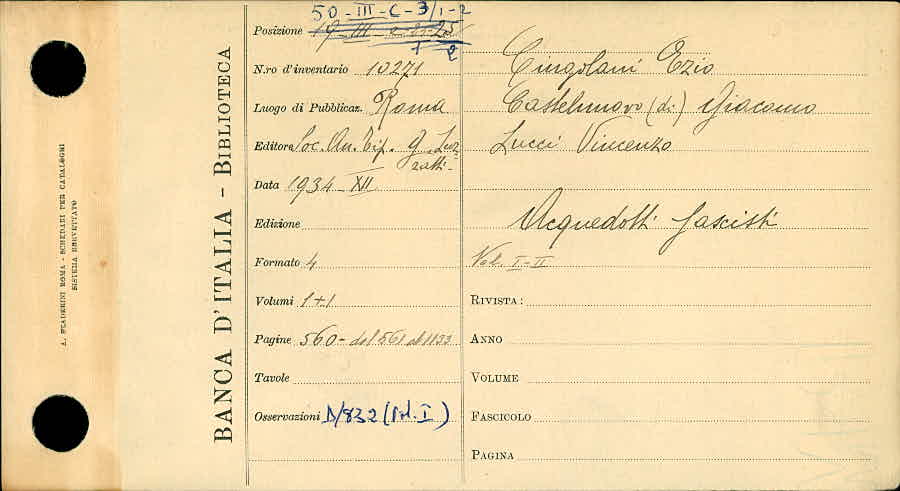 A. STADERINI ROMA - SCHEDARI PER CATALOGHI
SISTEMA BREVETTATO
BANCA D'ITALIA - BIBLIOTECA
50-III-C-3/1-2
Posizione 19-III
2
N.ro d'inventario 10271
Luogo di Pubblicaz. Roma
Editore Soc. An. Tip. G. Luz
zatti-
Data 1934-XII
Edizione
Formato 4
Volumi 1+1
Pagine 560- dal 561 al 1133
Tavole
Osservazioni D/832 (Vol. I)
Cingolani Ezio
Castelnuovo (di) Giacomo
Lucci Vincenzo
Acquedotti fascisti
Vol. I-II
RIVISTA:
ANNO
VOLUME
FASCICOLO
PAGINA